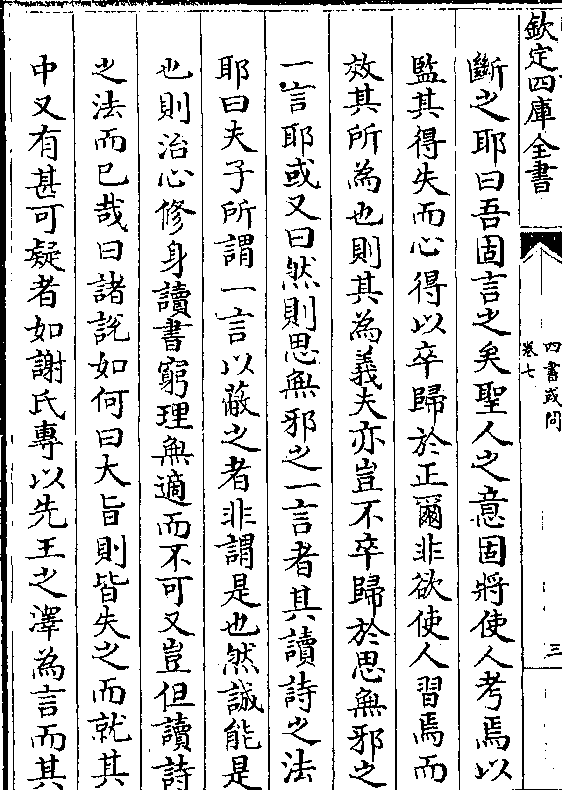 欽定四庫全書
四書或問
卷七
三
斷之耶曰吾固言之矣聖人之意固將使人考焉以
監其得失而心得以卒歸於正爾非欲使人習焉而
效其所為也則其為義夫亦豈不卒歸於思無邪之
一言耶或又曰然則思無邪之一言者其讀詩之法
耶曰夫子所謂一言以蔽之者非謂是也然誠能是
也則治心修身讀書窮理無適而不可又豈但讀詩
之法而已哉曰諸説如何曰大旨則皆失之而就其
中又有甚可疑者如謝氏專以先王之澤為言而其